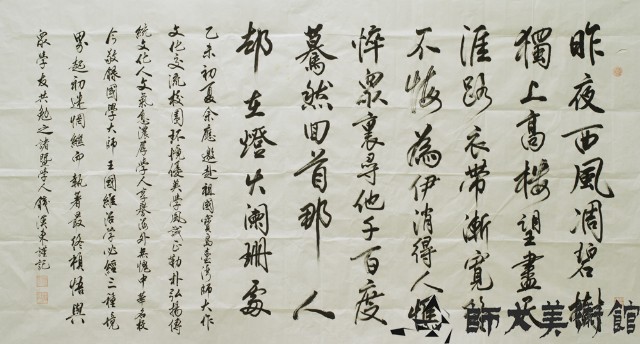 昨夜西風凋碧樹
獨上高樓望盡天
涯路衣帶漸寬終
不悔為伊消得人憔
悴眾裏尋他千百度
驀然回首那人
却在燈火闌珊處
乙未初夏余應邀赴祖國寶島臺灣師大作
文化交流校園環境優美學風正勤朴弘揚傳
統文化人文氣息濃厚學人享譽海外無愧中華名校
今敬錄國學大師王國維治學必經三種境
界起初迷惘繼而執著最終頓悟與
眾學友共勉之諸暨學人錢漢東謹記
師大美術館